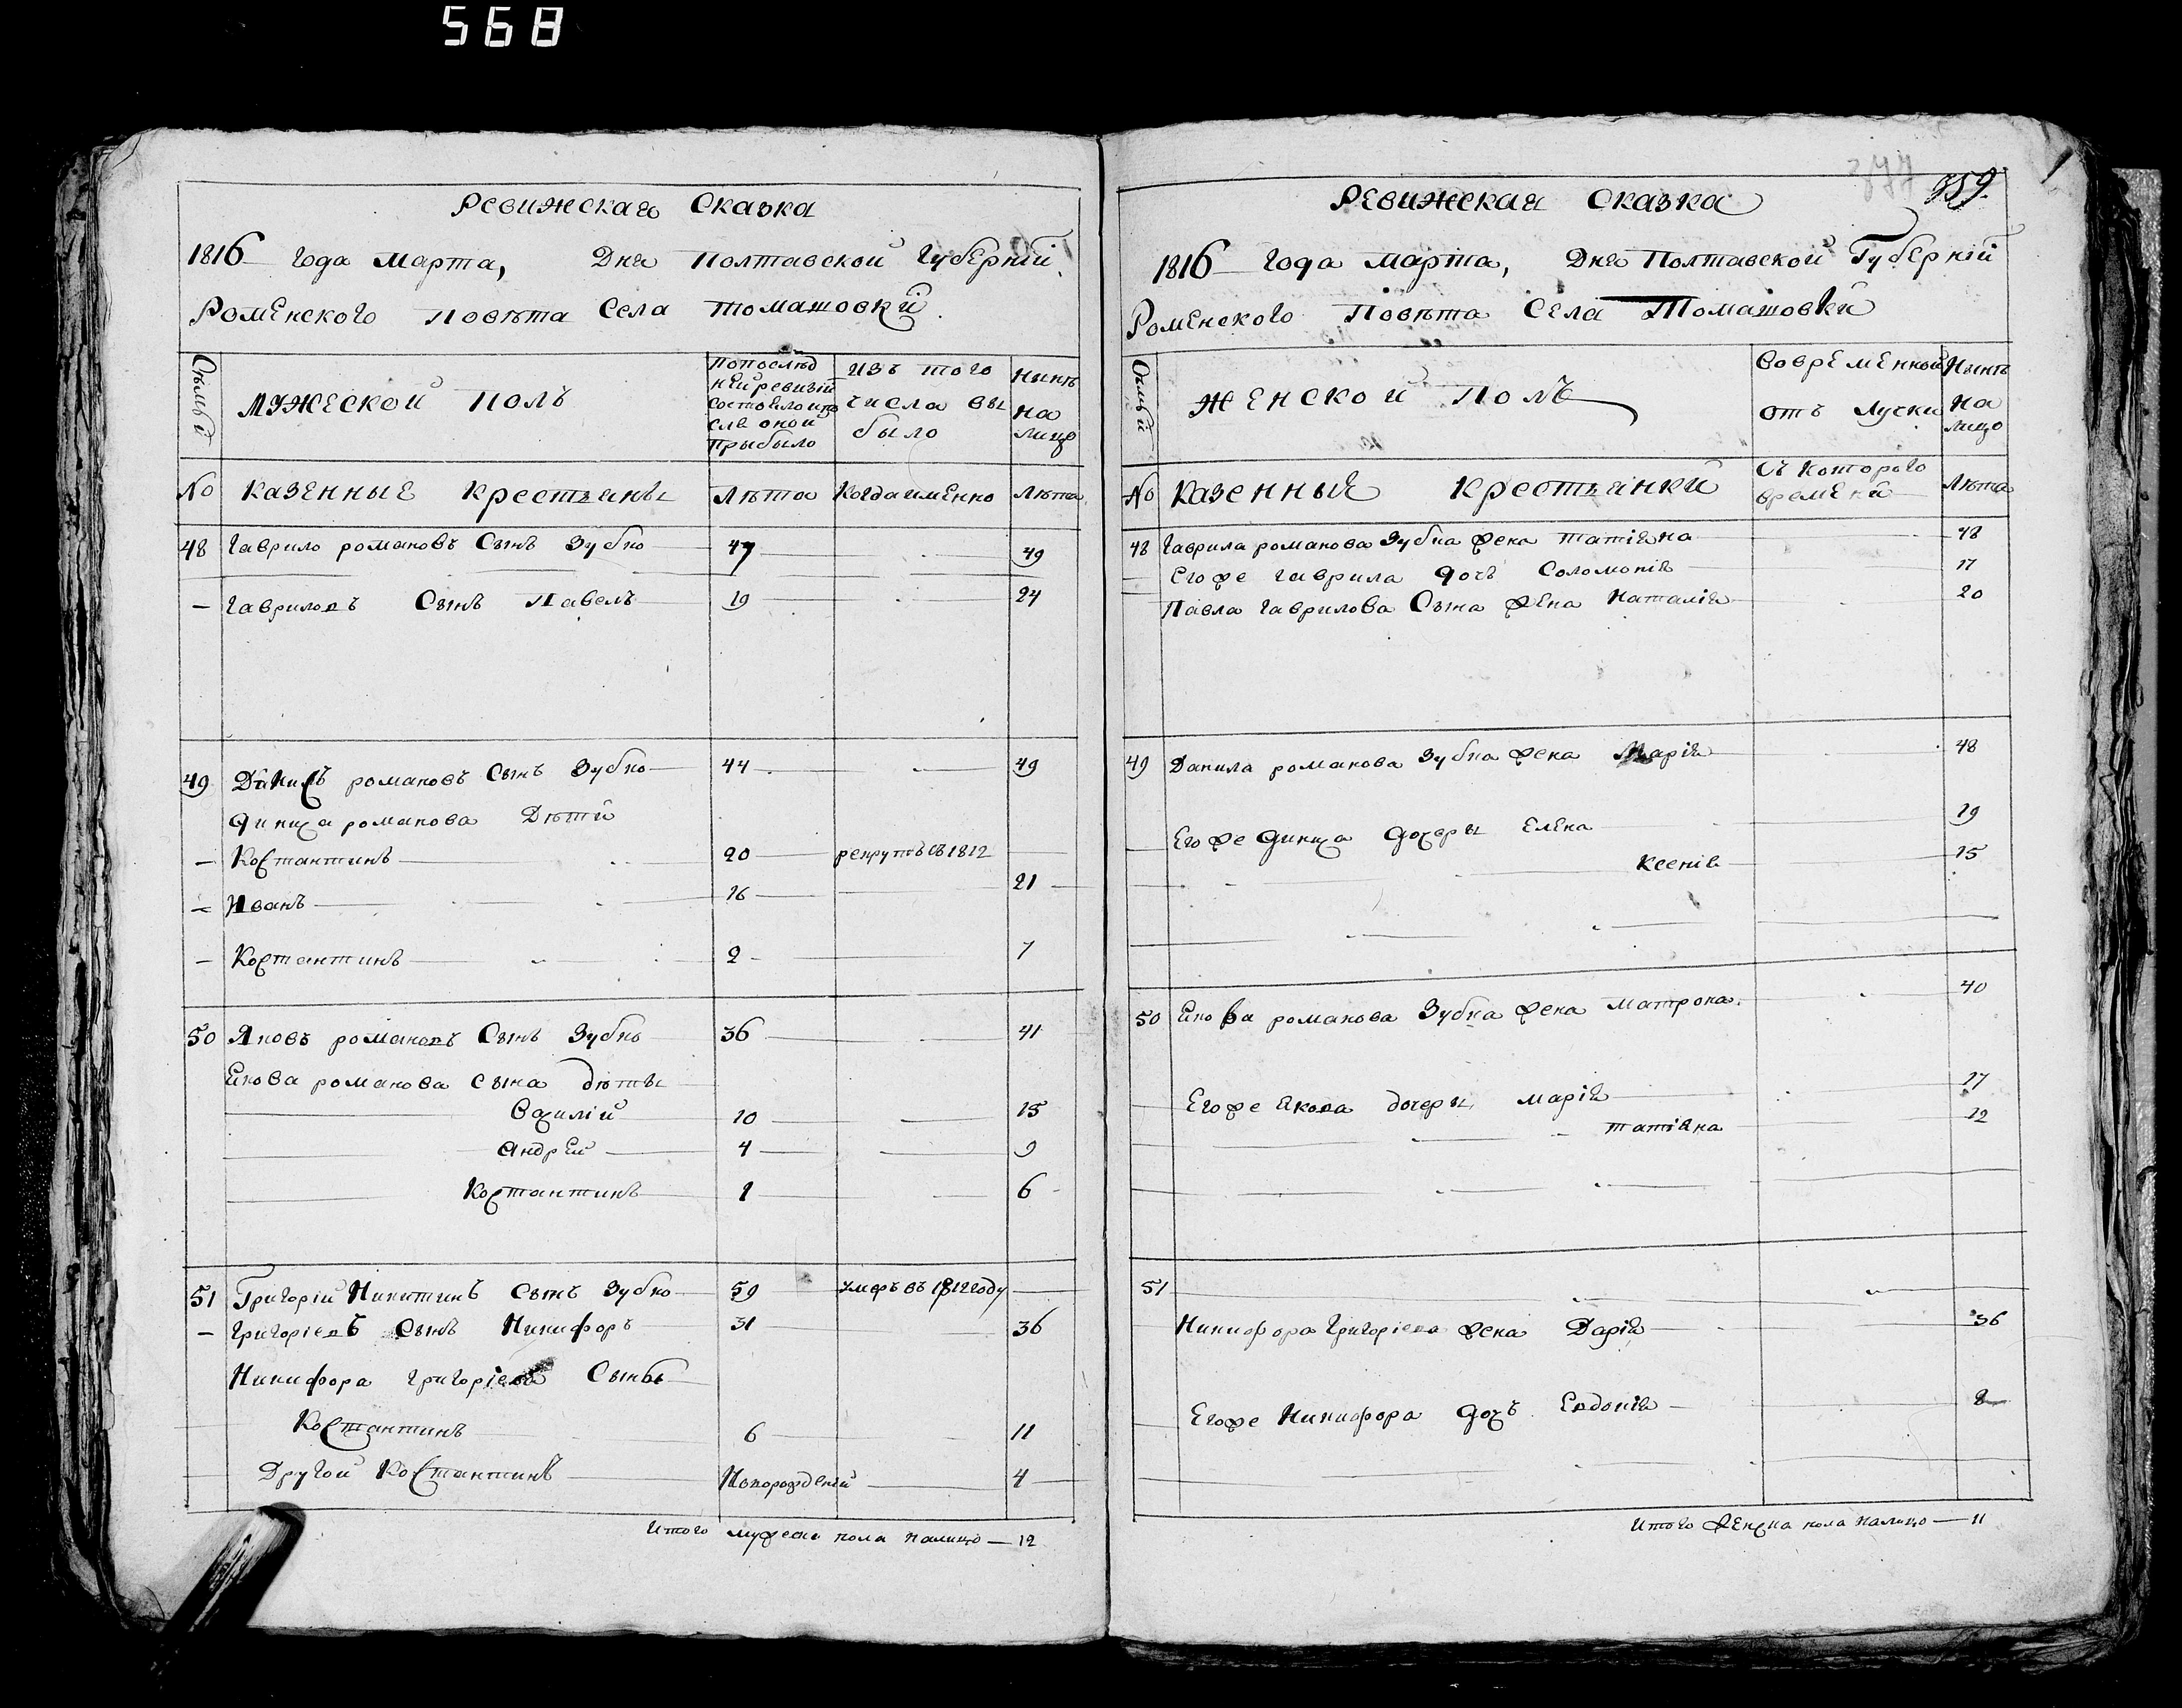 568
Ревижская Сказка
1816 года марта, Дня Полтавской Губерній
Роменского повѣта Села Томашовкй
Сѣмьй
мужеской полъ
попослѣд
ней ревизій
состояло и по
слѣ оной
прыбыло
изъ того
числа вы
было
нынѣ
на
лицо
No казенные крестьяны лѣта когда именно лѣта
48 Гаврило романовъ Сынъ Зубко 47 49
Гавриловъ Сынъ Павелъ 19 24
49 Данилъ романовъ Сынъ Зубко 44 49
романова Дѣтй
Костантинъ 20 рекрутъ съ 1812
Иванъ 16 21
Костантинъ 2 7
50 Яковъ романовъ Сынъ Зубко 36 41
Якова романова сына дѣты
Василій 10 15
Андрей 4 9
Костантинъ 1 6
51 Григорій Никитинъ Сынъ Зубко 59 умеръ въ 1812 году
Григоріевъ Сынъ Никифоръ 31 36
Никифора Григоріева Сыны
Костантинъ 6 11
Другой Костантинъ Новорожденій 4
Итого мужеска пола налицо — 12
377
359.
Ревижская Сказка
1816 года марта, Дня Полтавской Губерній
Роменского Повѣта Села Томашовкй
Сѣмьй
женской Полъ
Во временной
отъ лучки
Нынѣ
на
лицо
No казенные крестьянкй Съ которого
временй
лѣта
48 Гаврила романова Зубка жена татіяна 48
Его же Гаврила дочь Соломонія 17
Павла Гаврилова Сына жена Наталія 20
49 Данила романова Зубка жена Марія 48
Его же дочеры Елена 19
Ксенія 15
50 Якова романова Зубка жена матрона. 40
Его же Якова дочеры марія 17
татіяна 12
51
Никифора Григоріева жена Дарія 36
Его же Никифора дочъ Евдокія 8
Итого женска пола налицо — 11